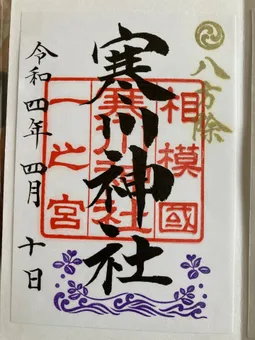 八方除
相模國
寒川神社
寒川神社
一之宮
令和四年四月十日